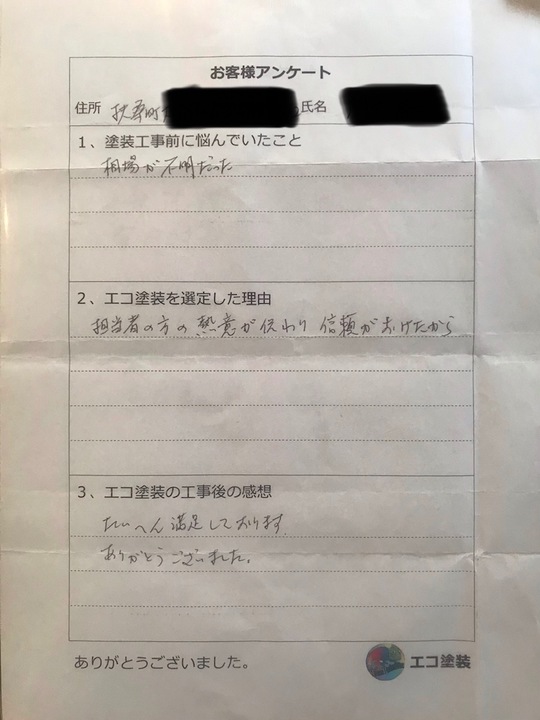 お客様アンケート
住所 扶桑町 氏名
1、塗装工事前に悩んでいたこと
相場が不明だった
2、エコ塗装を選定した理由
担当者の方の熱意が伝わり 信頼がおけたから
3、エコ塗装の工事後の感想
たいへん満足しております。
ありがとうございました。
ありがとうございました。 エコ塗装